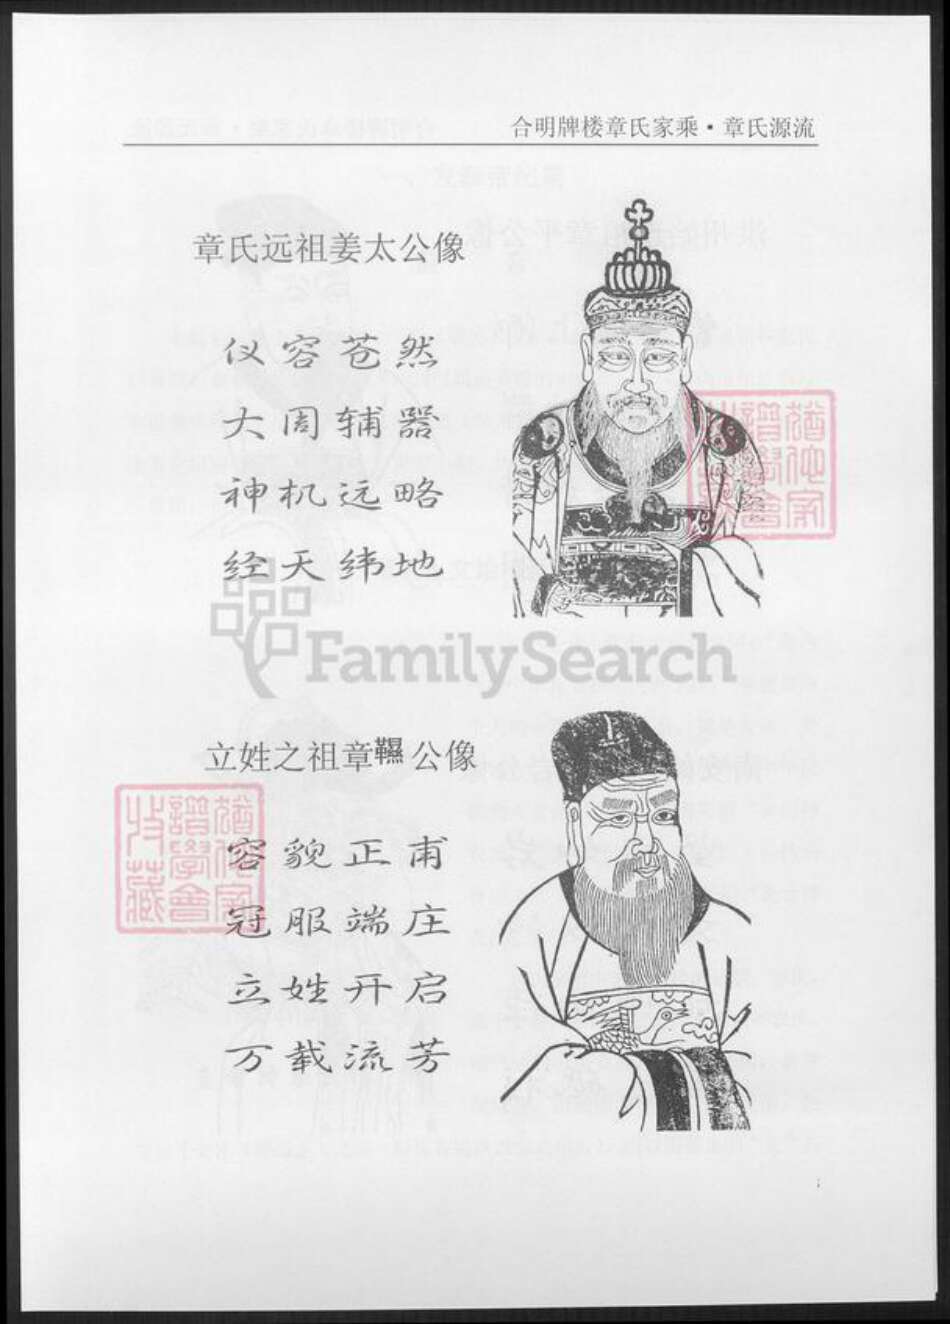 合明牌楼章氏家乘·章氏源流
章氏远祖姜太公像
仪容苍然
大周辅器
神机远略
经天纬地
FamilySearch
立姓之祖章韅公像
容貌正甫
冠服端庄
立姓开启
万载流芳
谱学会
收藏